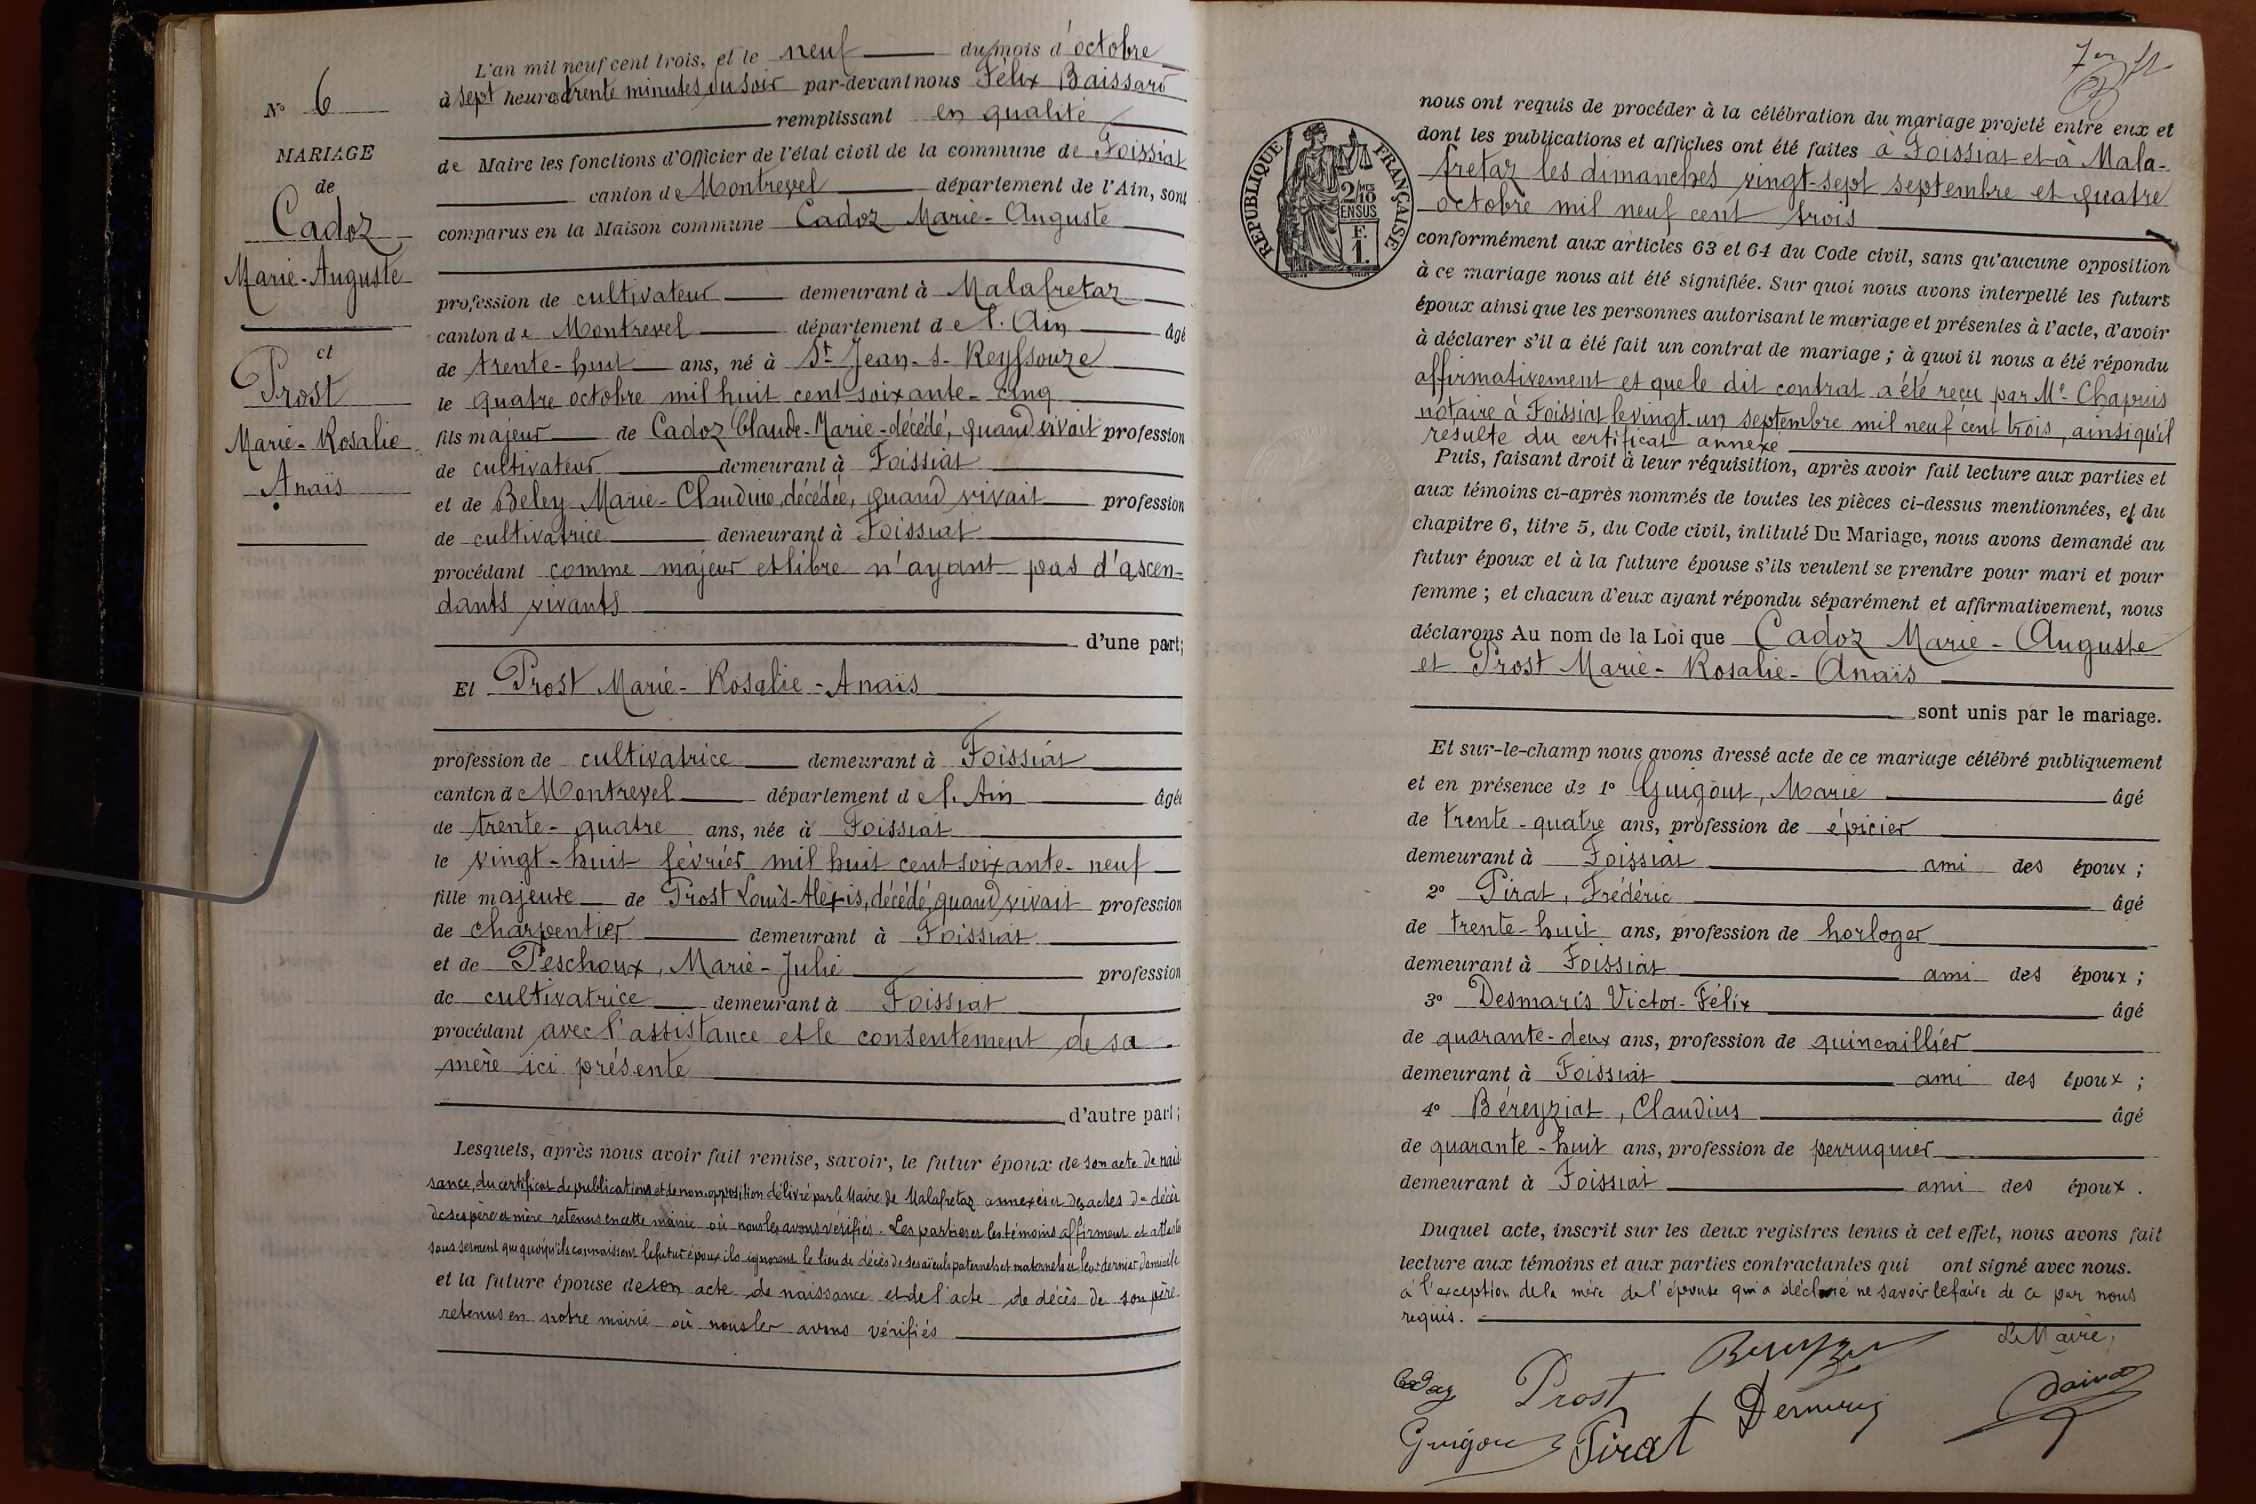 N° 6
MARIAGE
de
Cadoz
Marie-Auguste
et
Prost
Marie-Rosalie
Anaïs
L'an mil neuf cent trois, et le neuf du mois d'octobre
à sept heures trente minutes du soir par-devant nous Félix Baissard
remplissant en qualité
de Maire les fonctions d'Officier de l'état civil de la commune de Foissiat
canton de Montrevel département de l'Ain, sont
comparus en la Maison commune Cadoz Marie-Auguste
profession de cultivateur demeurant à Malafretaz
canton de Montrevel département de l'Ain âgé
de trente-huit ans, né à St Jean-s-Reyssouze
le quatre octobre mil huit cent soixante-cinq
fils majeur de Cadoz Claude-Marie-décédé, quand vivait profession
de cultivateur demeurant à Foissiat
et de Beley Marie-Claudine, décédée, quand vivait profession
de cultivatrice demeurant à Foissiat
procédant comme majeur et libre n'ayant pas d'ascen-
dants vivants
d'une part;
Et Prost Marie-Rosalie-Anaïs
profession de cultivatrice demeurant à Foissiat
canton de Montrevel département de l'Ain âgée
de trente-quatre ans, née à Foissiat
le vingt-huit février mil huit cent soixante-neuf
fille majeure de Prost Louis-Alexis, décédé, quand vivait profession
de charpentier demeurant à Foissiat
et de Peschoux, Marie-Julie profession
de cultivatrice demeurant à Foissiat
procédant avec l'assistance et le consentement de sa
mère ici présente
d'autre part;
Lesquels, après nous avoir fait remise, savoir, le futur époux de son acte de nais-
sance, du certificat de publications et de non opposition délivré par le Maire de Malafretaz annexés et des actes de décès
de ses père et mère retenus en cette mairie où nous les avons vérifiés. Les parties et les témoins affirment et attestent
sous serment que quoiqu'ils connaissent le futur époux ils ignorent le lieu de décès de ses aïeuls paternels et maternels et leur dernier domicile
et la future épouse de son acte de naissance et de l'acte de décès de son père
retenus en notre mairie où nous les avons vérifiés
7
RÉPUBLIQUE FRANÇAISE
2/10 MES
EN SUS
F.
1.
nous ont requis de procéder à la célébration du mariage projeté entre eux et
dont les publications et affiches ont été faites à Foissiat et à Mala-
fretaz les dimanches vingt-sept septembre et quatre
octobre mil neuf cent trois
conformément aux articles 63 et 64 du Code civil, sans qu'aucune opposition
à ce mariage nous ait été signifiée. Sur quoi nous avons interpellé les futurs
époux ainsi que les personnes autorisant le mariage et présentes à l'acte, d'avoir
à déclarer s'il a été fait un contrat de mariage; à quoi il nous a été répondu
affirmativement et que le dit contrat a été reçu par Me Chapuis
notaire à Foissiat le vingt-un septembre mil neuf cent trois, ainsi qu'il
résulte du certificat annexé
Puis, faisant droit à leur réquisition, après avoir fait lecture aux parties et
aux témoins ci-après nommés de toutes les pièces ci-dessus mentionnées, et du
chapitre 6, titre 5, du Code civil, intitulé Du Mariage, nous avons demandé au
futur époux et à la future épouse s'ils veulent se prendre pour mari et pour
femme; et chacun d'eux ayant répondu séparément et affirmativement, nous
déclarons Au nom de la Loi que Cadoz Marie-Auguste
et Prost Marie-Rosalie-Anaïs
sont unis par le mariage.
Et sur-le-champ nous avons dressé acte de ce mariage célébré publiquement
et en présence de 1° Guigout, Marie âgé
de trente-quatre ans, profession de épicier
demeurant à Foissiat ami des époux;
2° Pirat, Frédéric âgé
de trente-huit ans, profession de horloger
demeurant à Foissiat ami des époux;
3° Desmaris Victor-Félix âgé
de quarante-deux ans, profession de quincaillier
demeurant à Foissiat ami des époux;
4° Béreyziat, Claudius âgé
de quarante-huit ans, profession de perruquier
demeurant à Foissiat ami des époux.
Duquel acte, inscrit sur les deux registres tenus à cet effet, nous avons fait
lecture aux témoins et aux parties contractantes qui ont signé avec nous.
à l'exception de la mère de l'épouse qui a déclaré ne savoir le faire de ce par nous
requis.
Le Maire,
Cadoz Prost
Guigou Pirat